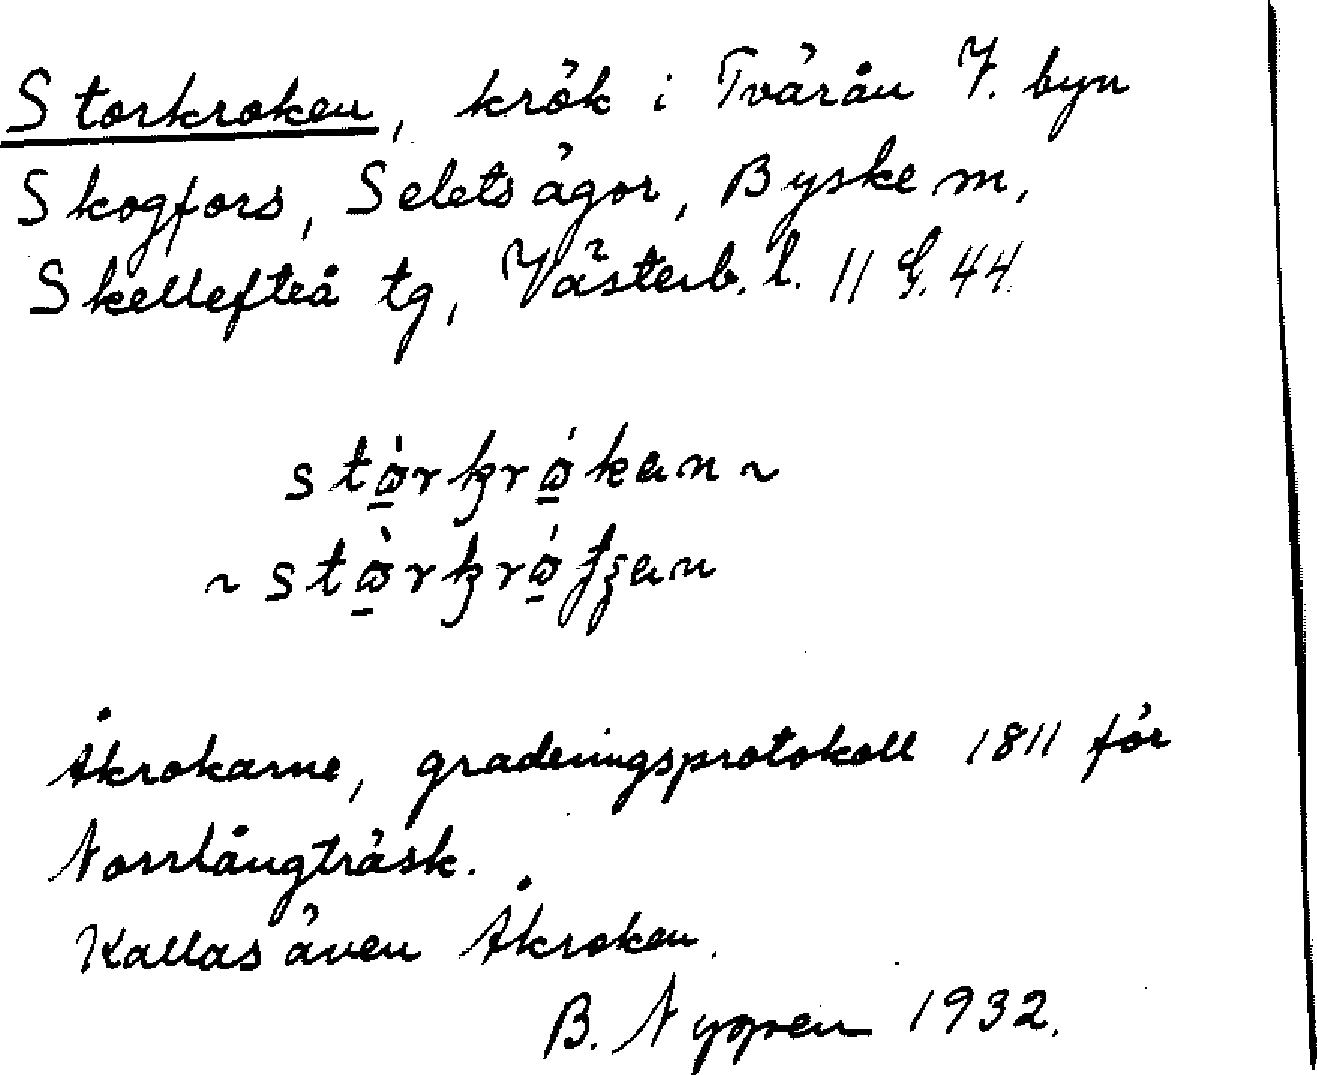 Storkroken, krök i Tvärån V. byn
Skogfors, Selets ägor, Byske sn,
Skellefteå tg, Västerb. l. 11 G. 44.
~
~
Åkrokarne, graderingsprotokoll 1811 för
Norrlångträsk.
Kallas även Åkroken.
B. Nygren 1932.